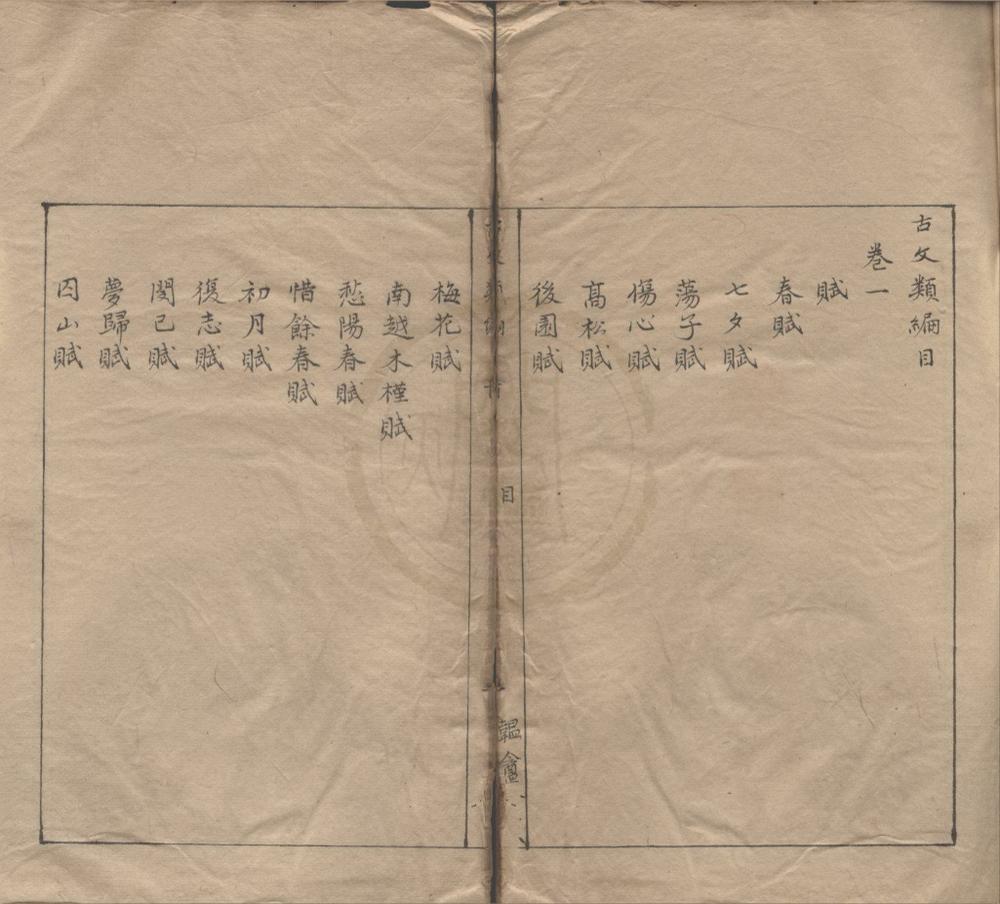 古文類編目
卷一
賦
春賦
七夕賦
蕩子賦
傷心賦
髙松賦
後園賦
目
韞盦
梅花賦
南越木槿賦
愁陽春賦
惜餘春賦
初月賦
復志賦
閔己賦
夢歸賦
囚山賦